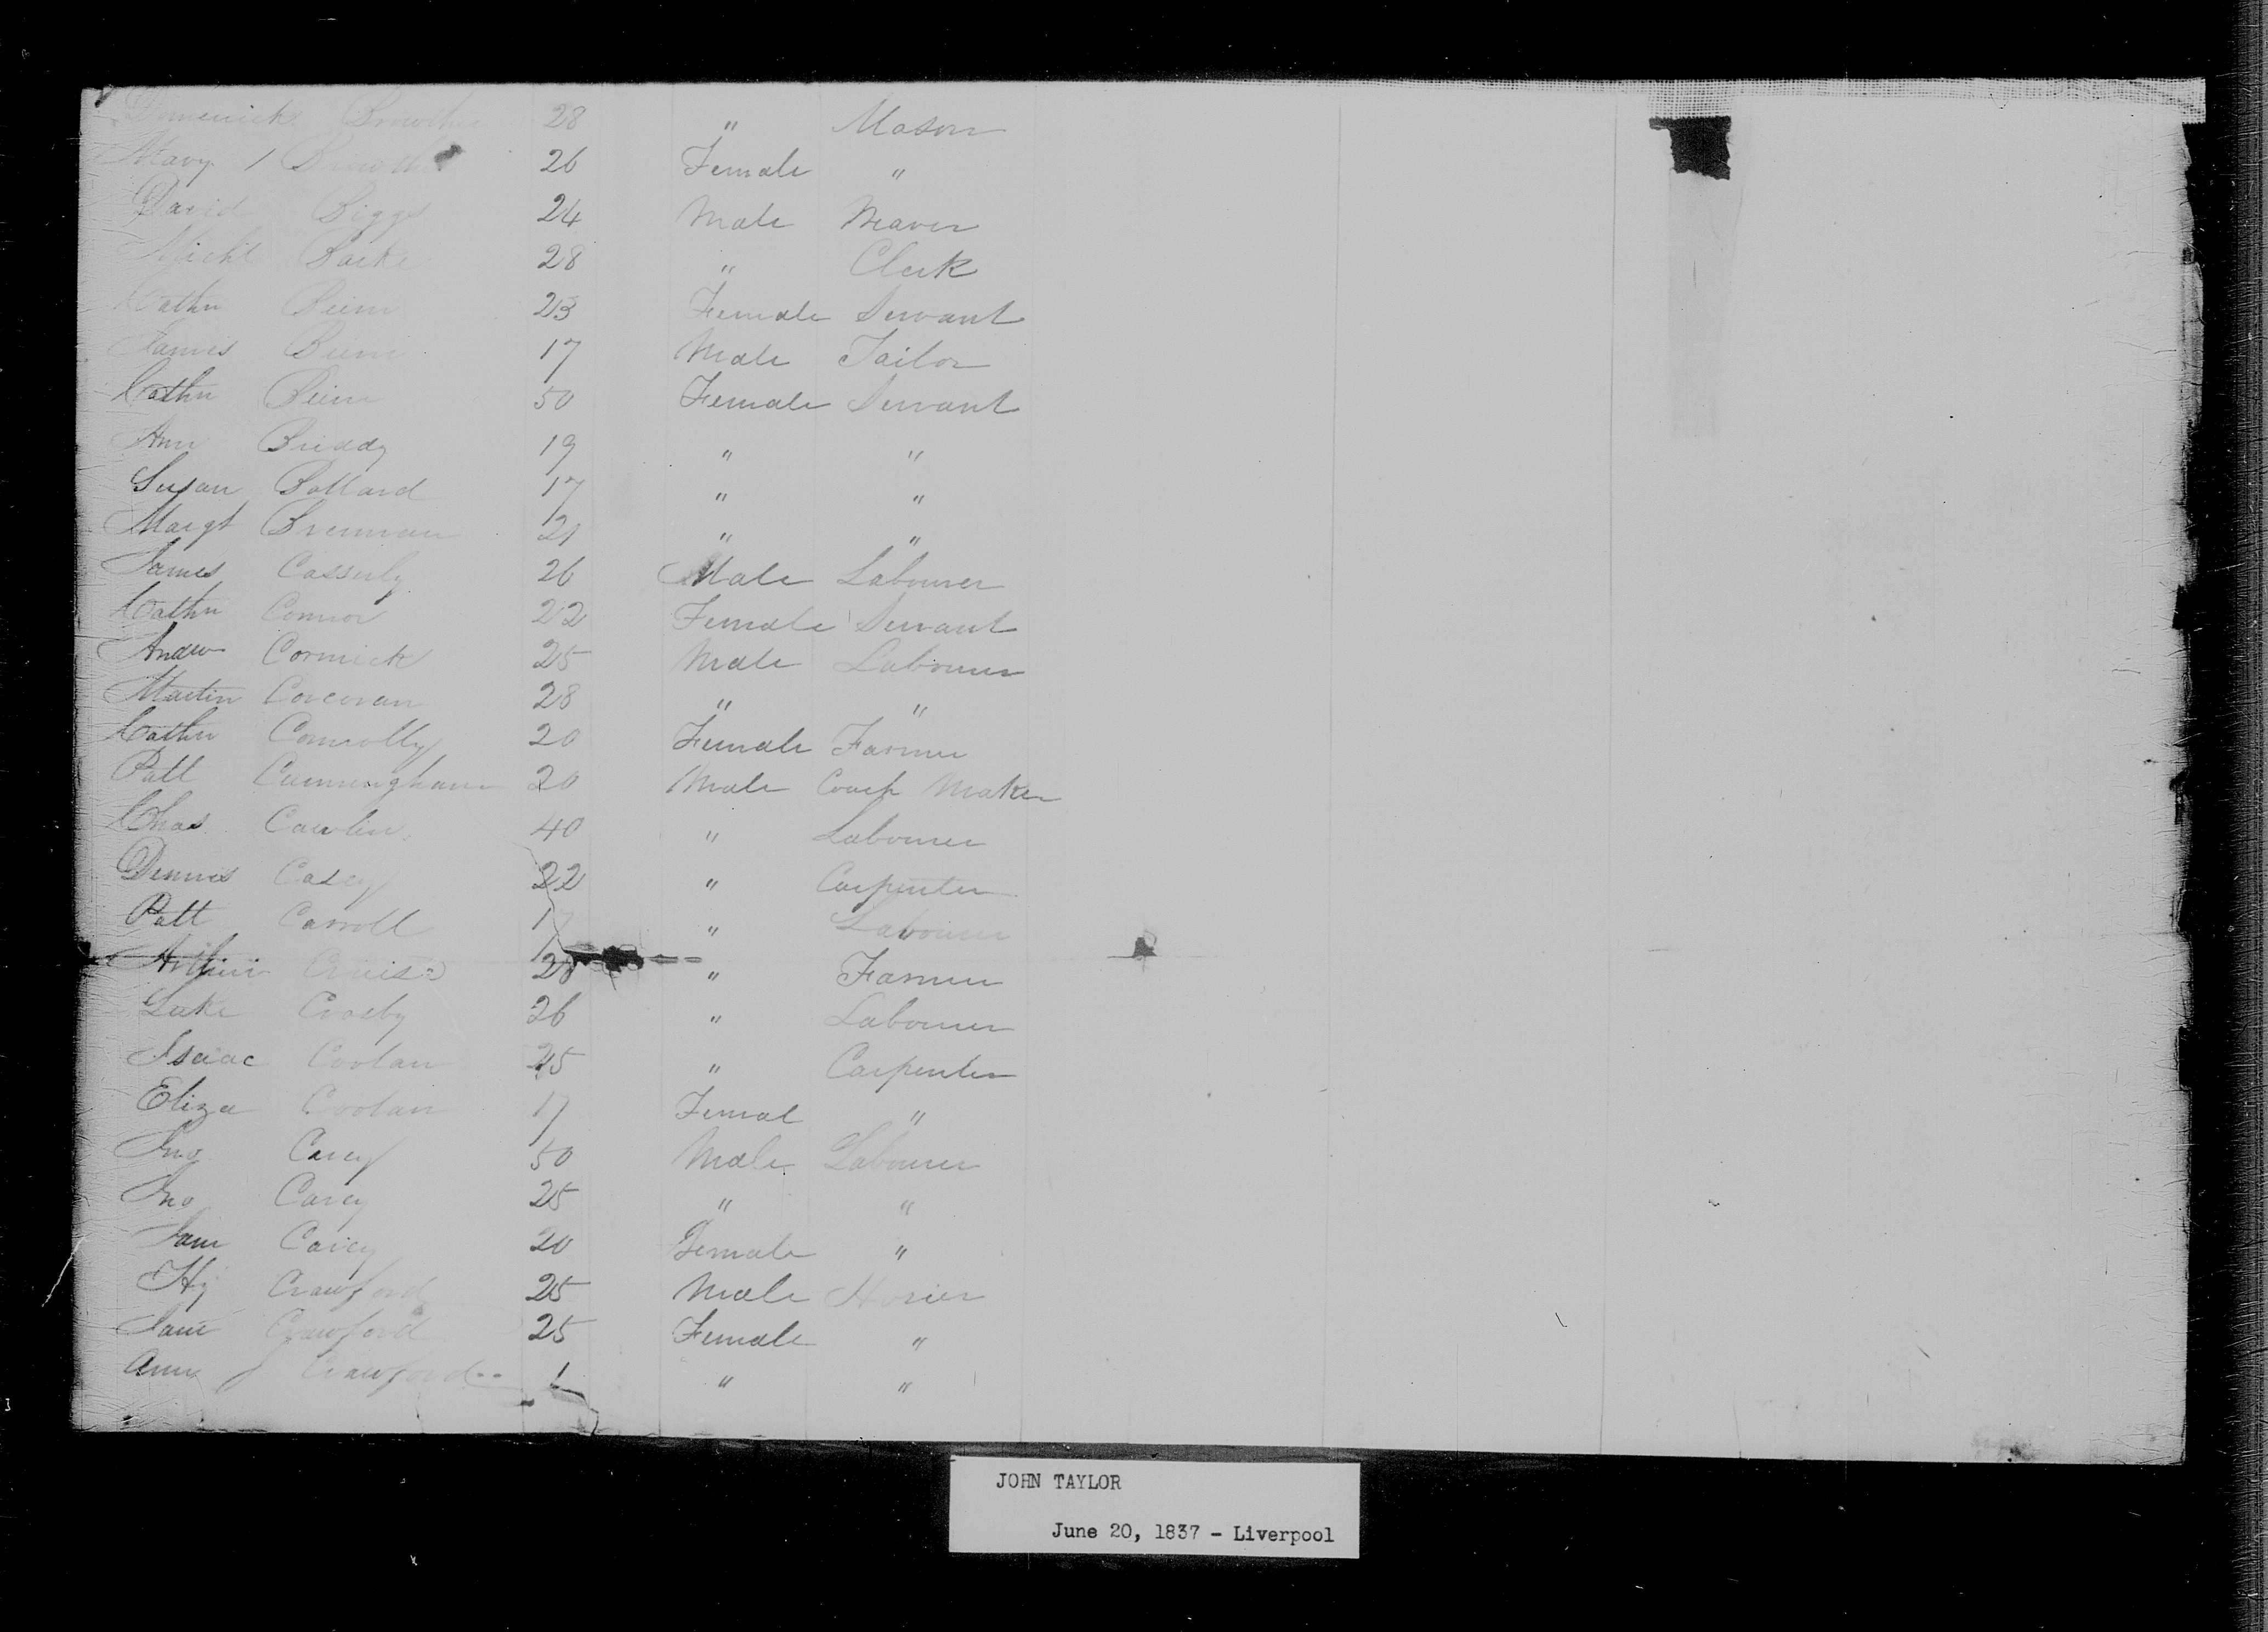 Domenick 28 " Mason
Mary 26 Female "
David Biggs 24 Male Weaver
Michl Burke 28 " Clerk
Cathn 23 Female Servant
James 17 Male Tailor
Cathn 50 Female Servant
Ann Briddy 19 " "
Susan Bollard 17 " "
Margt Brennan 21 " "
James Casserly 26 Male Labourer
Cathn Connor 22 Female Servant
Andw Cormick 25 Male Labourer
Martin Corcoran 28 " "
Cathn Connolly 20 Female Farmer
Patt Cunningham 20 Male Coach Maker
Chas 40 " Labourer
Dennis Casey 22 " Carpenter
Patt Carroll " Labourer
Arthur Cruise 20 " Farmer
Luke Crosby 26 " Labourer
Isaac Coolan 25 " Carpenter
Eliza Coolan 17 Femal "
Jno Carey 50 Male Labourer
Jno Carey 25 " "
Jane Carey 20 Female "
Hy Crawford 25 Male Hosier
Jane Crawford 25 Female "
Ann J Crawford 1 " "
JOHN TAYLOR
June 20, 1837 - Liverpool